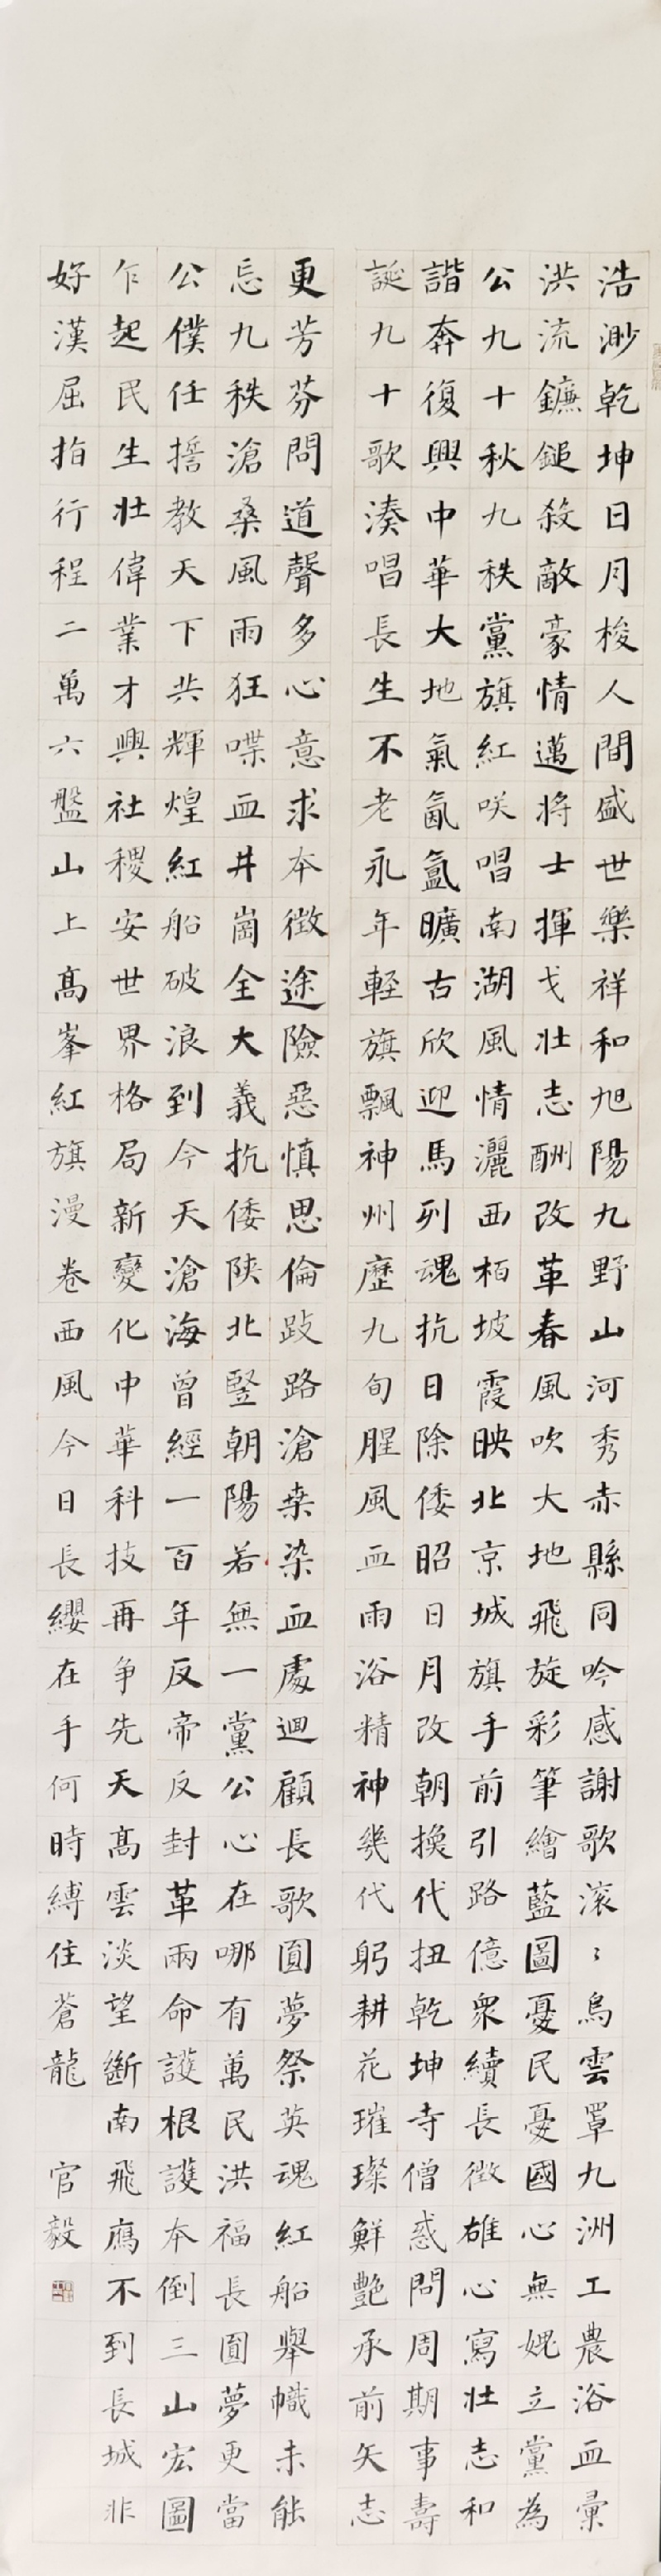 浩渺乾坤日月梭人間盛世樂祥和旭陽九野山河秀赤縣同吟感謝歌滚〻烏雲罩九洲工農浴血彙
洪流鐮鎚殺敵豪情邁将士揮戈壮志酬改革春風吹大地飛旋彩筆繪藍圖憂民憂國心無媿立黨為
公九十秋九秩黨旗紅咲唱南湖風情灑西柏坡霞映北京城旗手前引路億衆續長徵雄心寫壮志和
諧奔復興中華大地氣氤氳曠古欣迎馬列魂抗日除倭昭日月改朝換代扭乾坤寺僧惑問周期事壽
誕九十歌湊唱長生不老永年輕旗飄神州歷九旬腥風血雨浴精神幾代躬耕花璀璨鮮艷承前矢志
更芳芬問道聲多心意求本徵途險惡慎思倫跂路滄桒染血處迴顧長歌圓夢祭英魂紅船舉幟未能
忘九秩滄桑風雨狂喋血井崗全大義抗倭陝北豎朝陽若無一黨公心在哪有萬民洪福長圓夢更當
公僕任擔教天下共輝煌紅船破浪到今天滄海曾經一百年反帝反封革兩命護根護本倒三山宏圖
乍起民生壮偉業才興社稷安世界格局新變化中華科技再争先天髙雲淡望斷南飛鴈不到長城非
好漢屈指行程二萬六盤山上髙峯紅旗漫卷西風今日長纓在手何時縛住蒼龍 官毅